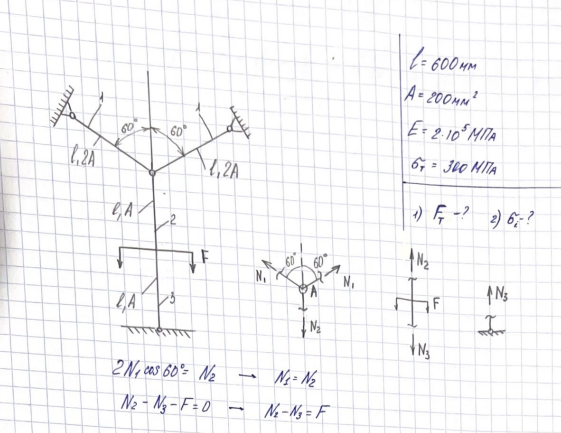 l = 600 мм
A = 200 мм²
E = 2·10⁵ МПа
σт = 300 МПа
1) Fт - ? 2) σi - ?
1
1
60° 60°
l, 2A
l, 2A
l, A
2
F
l, A
3
60° 60°
N₁
N₁
A
N₂
N₂
F
N₃
N₃
2N₁ cos 60° = N₂ → N₁ = N₂
N₂ - N₃ - F = 0 → N₂ - N₃ = F